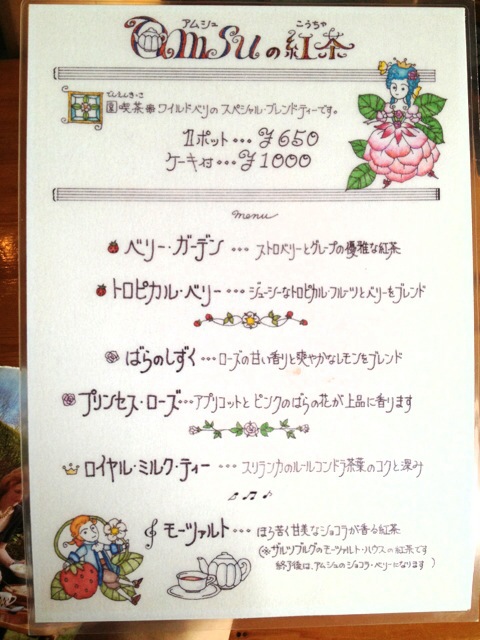 アムシュ こうちゃ
Amsuの紅茶
ワイルドベリのスペシャル・ブレンドティーです。
1ポット・・・¥650
ケーキ付・・・¥1000
menu
ベリー・ガーデン・・・ストロベリーとグレープの優雅な紅茶
トロピカル・ベリー・・・ジューシーなトロピカル・フルーツとベリーをブレンド
ばらのしずく・・・ローズの甘い香りと爽やかなレモンをブレンド
プリンセス・ローズ・・・アプリコットとピンクのばらの花が上品に香ります
ロイヤル・ミルク・ティー・・・スリランカのルールコンドラ茶葉のコクと深み
モーツァルト・・・ほろ苦く甘美なショコラが香る紅茶
(※ザルツブルグのモーツァルト・ハウスの紅茶です
終了後は、アムシュのショコラ・ベリーになります)